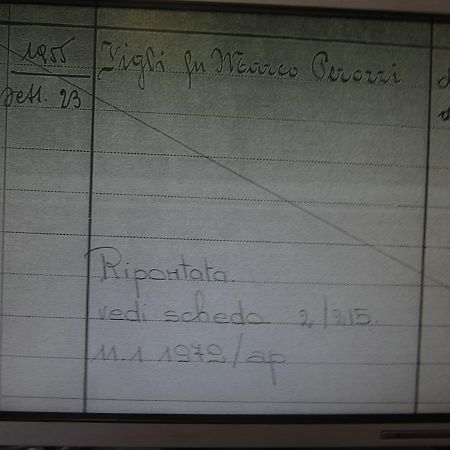 1955
Figli fu Marco Perozzi
Sett. 23
Riportata
vedi scheda 2/215.
11.1 1979/ap